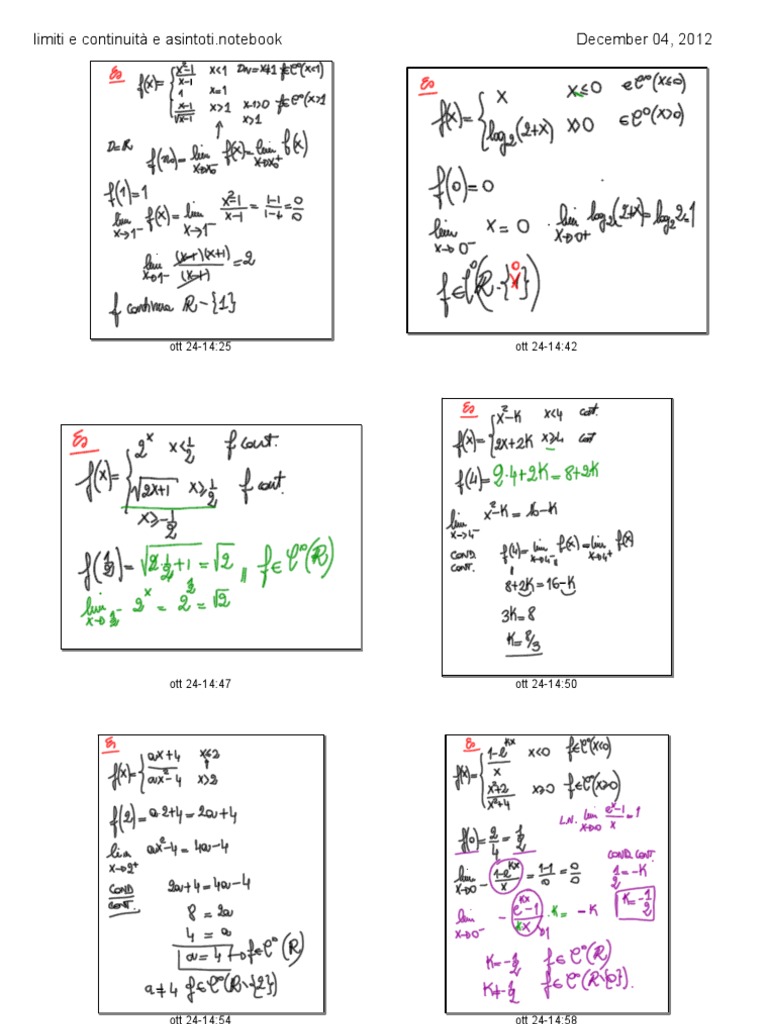 limiti e continuità e asintoti.notebook
December 04, 2012
Es
f(x)= { x²-1/x-1 x<1 D=x≠1 f∈C⁰(x<1)
1 x=1
x-1/√x-1 x>1 x-1>0 f∈C⁰(x>1)
x>1
D=R
f(x₀)=lim x→x₀⁻ f(x)=lim x→x₀⁺ f(x)
f(1)=1
lim x→1⁻ f(x)=lim x→1⁻ x²-1/x-1 = 1-1/1-1 = 0/0
lim x→1⁻ (x-1)(x+1)/(x-1) = 2
f continua R-{1}
ott 24-14:25
Es
f(x)= { x x≤0 ∈C⁰(x≤0)
log₂(2+x) x>0 ∈C⁰(x>0)
f(0)=0
lim x→0⁻ x=0 lim x→0⁺ log₂(2+x)=log₂2=1
f∈C⁰(R-{0})
ott 24-14:42
Es
f(x)= { 2ˣ x<1/2 f cont.
√2x+1 x≥1/2 f cont.
x≥-1/2
f(1/2)=√2·1/2+1=√2 f∈C⁰(R)
lim x→1/2⁻ 2ˣ = 2^1/2 = √2
ott 24-14:47
Es
f(x)= { x²-K x<4 cont.
2x+2K x≥4 cont
f(4)=2·4+2K=8+2K
lim x→4⁻ x²-K=16-K
COND. CONT. f(4)=lim x→4⁻ f(x)=lim x→4⁺ f(x)
8+2K=16-K
3K=8
K=8/3
ott 24-14:50
Es
f(x)= { ax+4 x≤2
ax²-4 x>2
f(2)=a·2+4=2a+4
lim x→2⁺ ax²-4=4a-4
COND CONT. 2a+4=4a-4
8=2a
4=a
a=4→f∈C⁰(R)
a≠4 f∈C⁰(R\{2})
ott 24-14:54
Es
f(x)= { 1-e^Kx/x x<0 f∈C⁰(x<0)
x²+2/x²+4 x≥0 f∈C⁰(x≥0)
L.N. lim x→0 eˣ-1/x=1
f(0)=2/4=1/2
COND. CONT.
lim x→0⁻ 1-e^Kx/x = 1-1/0 = 0/0
1/2=-K
lim x→0⁻ - e^Kx-1/Kx ·K= -K
K=-1/2
K=-1/2 f∈C⁰(R)
K≠-1/2 f∈C⁰(R\{0}).
ott 24-14:58